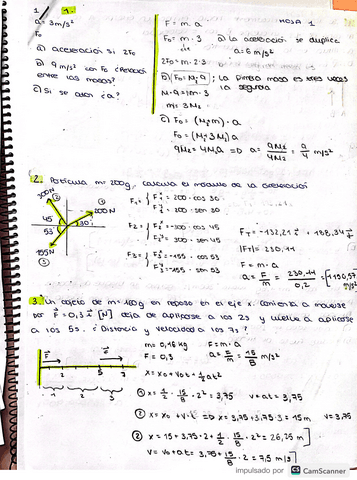 1.
a = 3 m/s²
F₀
a) aceleración si 2F₀
b) 9 m/s² con F₀ ¿Relación
entre las masas?
c) Si se unen ¿a?
HOJA 1
F = m · a
F₀ = m · 3 a) La aceleración se duplica
a = 6 m/s²
2F₀ = m · 2 · 3
b) F₀ = M₂ · 9 ; La primera masa es tres veces
la segunda
M₂ · 9 = m · 3
m = 3M₂
c) F₀ = (M₂ + m) · a
F₀ = (M₂ + 3M₂) a
9M₂ = 4M₂ a => a = 9M₂/4M₂ = 9/4 m/s²
2. Partícula m = 200g, calcula el módulo de la aceleración
300N ②
① 200N
45
30
53
155N
③
F₁ = { F₁ˣ = 200 · cos 30
F₁ʸ = 200 · sen 30
F₂ = { F₂ˣ = -300 · cos 45
F₂ʸ = 300 · sen 45
F₃ = { F₃ˣ = -155 · cos 53
F₃ʸ = -155 · sen 53
|F_T| = 230,
F = m · a
3. Un objeto de m = 160g en reposo en el eje x. Comienza a moverse
por F = 0,3 i [N] deja de aplicarse a los 2s y vuelve a aplicarse
a los 5s. ¿Distancia y velocidad a los 7s?
F F
2 5 7
1 2 3
m = 0,16 kg F = m · a
F = 0,3 a = F/m = 15/8 m/s²
x = x₀ + v₀t + 1/2 at²
① x = 1/2 · 15/8 · 2² = 3,75 v = at = 3,75
② x = x₀ + v · t => x = 3,75 + 3,75 · 3 = 15 m v = 3,75
③ x = 15 + 3,75 · 2 + 1/2 · 15/8 · 2² = 26,25 m
v = v₀ + at = 3,75 + 15/8 · 2 = 7,5 m/s
impulsado por CS CamScanner